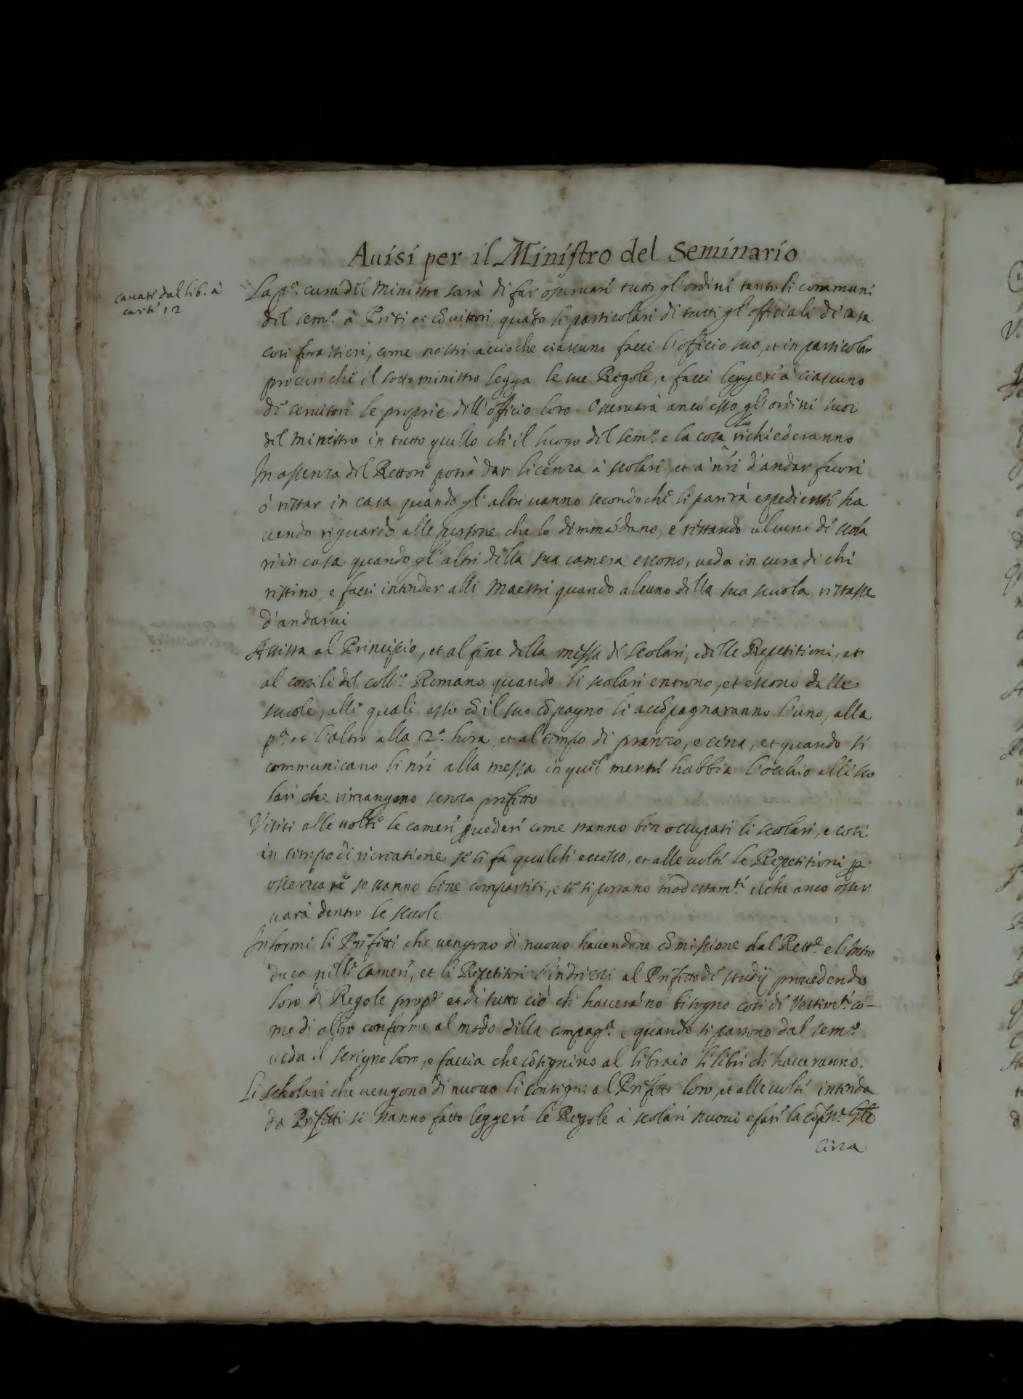 Auisi per il Ministro del Seminario
cauati dal lib. à
carte 12
La p.ª cura del Ministro sarà di far osseruare tutti gl'ordini tanto li communi
del sem.º à Preti et cōuittori, quāto li particolari di tutti gl'officiali di casa
cosi forastieri, come nostri accioche ciascuno facci l'officio suo, et in particolar
procuri che il sotto ministro legga le sue Regole, e facci leggere à ciascuno
de seruitori le proprie dell'officio loro. Osseruarà anco esso gl'ordini suoi
del Ministro in tutto quello che il luogo del sem.º e la cosa richiederanno
In assenza del Rettore potrà dar licenza à scolari et à nr̃i d'andar fuori
ò restar in casa quando gl'altri uanno secondo che li parirà espediente ha
uendo riguardo alle persone che lo dimmādano, e restando alcuni de scola
ri in casa quando gl'altri della sua camera escono, ueda in cura di chi
restino, e facci intender alli Maestri quando alcuno della sua scuola restasse
d'andarui
Assista al Principio, et al fine della messa de scolari, e delle Repetitioni, et
al cortile del coll.º Romano quando li scolari entrano, et escono dalle
scuole, alli quali esso cō il suo cōpagno li accōpagnaranno l'uno, alla
p.ª et l'altro alla 2.ª hora, et al tempo di pranzo, e cena, et quando si
communicano li nr̃i alla messa in quel mentre habbia l'occhio alli sco
lari che rimangono senza prefetto
Visiti alle uolte le camere p uedere come stanno ben occupati li scolari, e cosi
in tempo di ricreatione se si fa qualche eccesso, et alle uolte le Repetitioni p
osseruare se stanno bene compartiti, e se si portano modestam.te ilche anco osser
uarà dentro le scuole
Informi li Prefetti che uengono di nuouo hauendone cōmissione dal Rett.e e l'intro
duca nelle Camere, et li Repetitori l'indrizzi al Prefetto de studij prouedendo
loro di Regole prop.e et di tutto ciò che hauerāno bisogno cosi di Vestim.ti co-
me di altro conforme al modo della compag.ª e quando si partono dal sem.º
ueda il scrigno loro, e faccia che cōsegnino al libraio li libri che haueranno.
Li scholari che uengono di nuouo li consigni al Prefetto loro, et alle uolte intenda
da Prefetti se hanno fatto leggere le Regole à scolari nuoui e fare la
circa